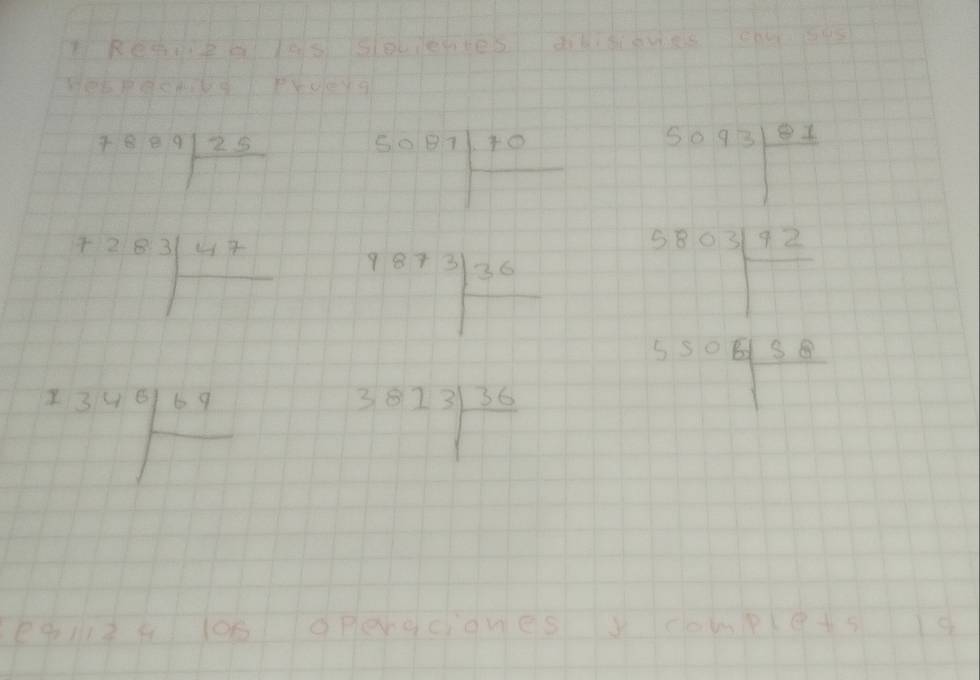 1 Realiza las siguientes dibisiones con sus
respectiva prueva
7889 25 5081 70 5093 81
7283 47 9873 36 5803 92
1346 69 3813 36 5506 58
realiza las operaciones y completa la